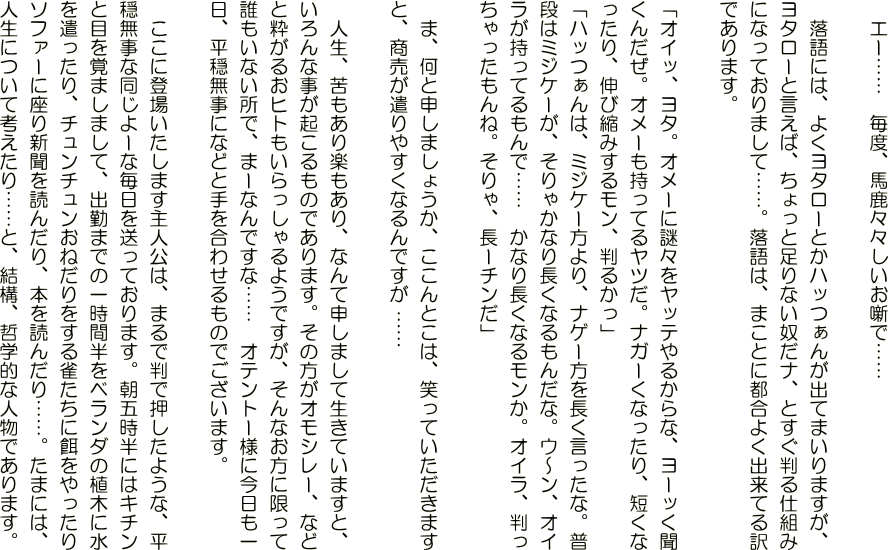 エー…… 毎度、馬鹿々々しいお噺で……
落語には、よくヨタローとかハッつぁんが出てまいりますが、
ヨタローと言えば、ちょっと足りない奴だナ、とすぐ判る仕組み
になっておりまして……。落語は、まことに都合よく出来てる訳
であります。
「オイッ、ヨタ。オメーに謎々をヤッテやるからな、ヨーッく聞
くんだぜ。オメーも持ってるヤツだ。ナガーくなったり、短くな
ったり、伸び縮みするモン、判るかっ」
「ハッつぁんは、ミジケー方より、ナゲー方を長く言ったな。普
段はミジケーが、そりゃかなり長くなるもんだな。ウ〜ン、オイ
ラが持ってるもんで…… かなり長くなるモンか。オイラ、判っ
ちゃったもんね。そりゃ、長ーチンだ」
ま、何と申しましょうか、ここんとこは、笑っていただきます
と、商売が遣りやすくなるんですが ……
人生、苦もあり楽もあり、なんて申しまして生きていますと、
いろんな事が起こるものであります。その方がオモシレー、など
と粋がるおヒトもいらっしゃるようですが、そんなお方に限って
誰もいない所で、まーなんですな…… オテントー様に今日も一
日、平穏無事になどと手を合わせるものでございます。
ここに登場いたします主人公は、まるで判で押したような、平
穏無事な同じよーな毎日を送っております。朝五時半にはキチン
と目を覚ましまして、出勤までの一時間半をベランダの植木に水
を遣ったり、チュンチュンおねだりをする雀たちに餌をやったり
ソファーに座り新聞を読んだり、本を読んだり……。たまには、
人生について考えたり……と、結構、哲学的な人物であります。